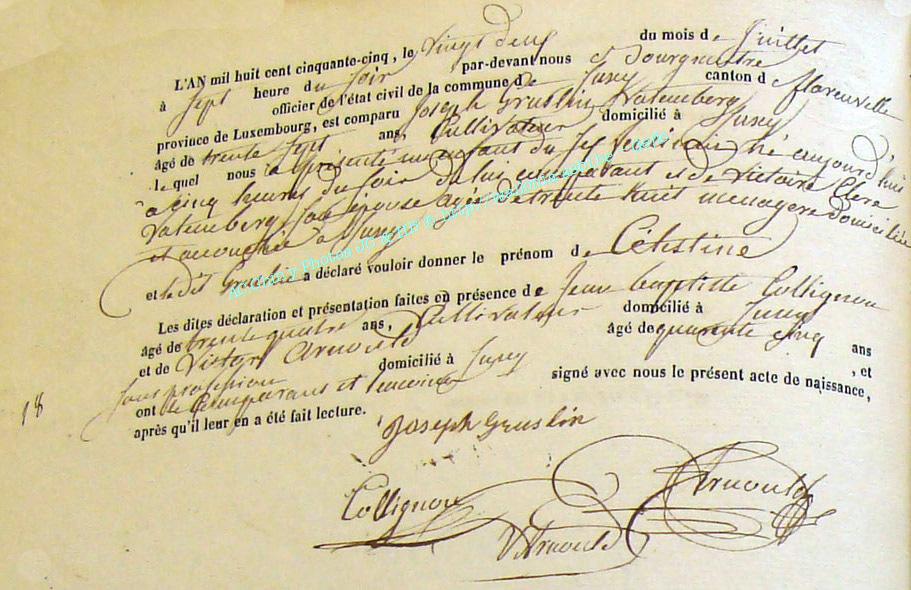 L'AN mil huit cent cinquante-cinq, le vingt deux du mois de Juillet
à sept heure du soir par-devant nous Bourgmestre
officier de l'état civil de la commune de Jusny canton d florenville
province de Luxembourg, est comparu Joseph Gruslin
âgé de trente sept ans, Cultivateur domicilié à Jusny
lequel nous a présenté un enfant du sexe né aujourd'hui
à cinq heures du soir de lui comparant et de Victoire
son épouse agée de trente huit menagere domiciliée
et accouchée à Jusny
et le dit Gruslin a déclaré vouloir donner le prénom de Célestine
Les dites déclaration et présentation faites en présence de Jean Baptiste Collignon
âgé de trente quatre ans, Cultivateur domicilié à Jusny
et de Victor Arnould âgé de quarante cinq ans
sans profession domicilié à Jusny , et
ont le Comparant et temoins signé avec nous le présent acte de naissance,
après qu'il leur en a été fait lecture.
18
Joseph Gruslin
Collignon
V Arnould
Arnould